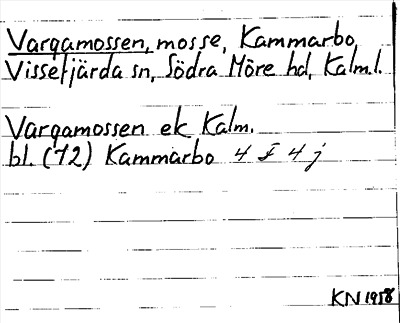 Vargamossen, mosse, Kammarbo,
Vissefjärda sn, Södra Möre hd, Kalm.l.
Vargamossen ek Kalm.
bl. (12) Kammarbo 4 I 4 j
KN 1958